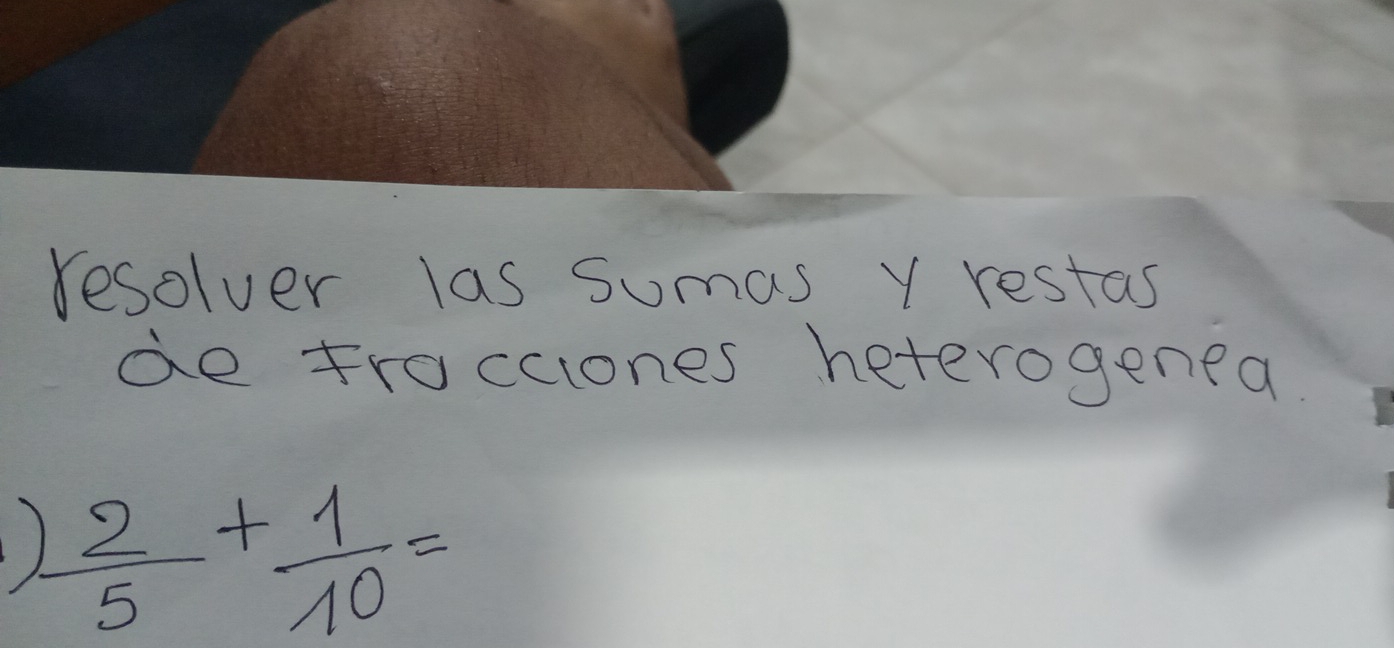 resolver las sumas y restas
de fracciones heterogenea.
) 2/5 + 1/10 =